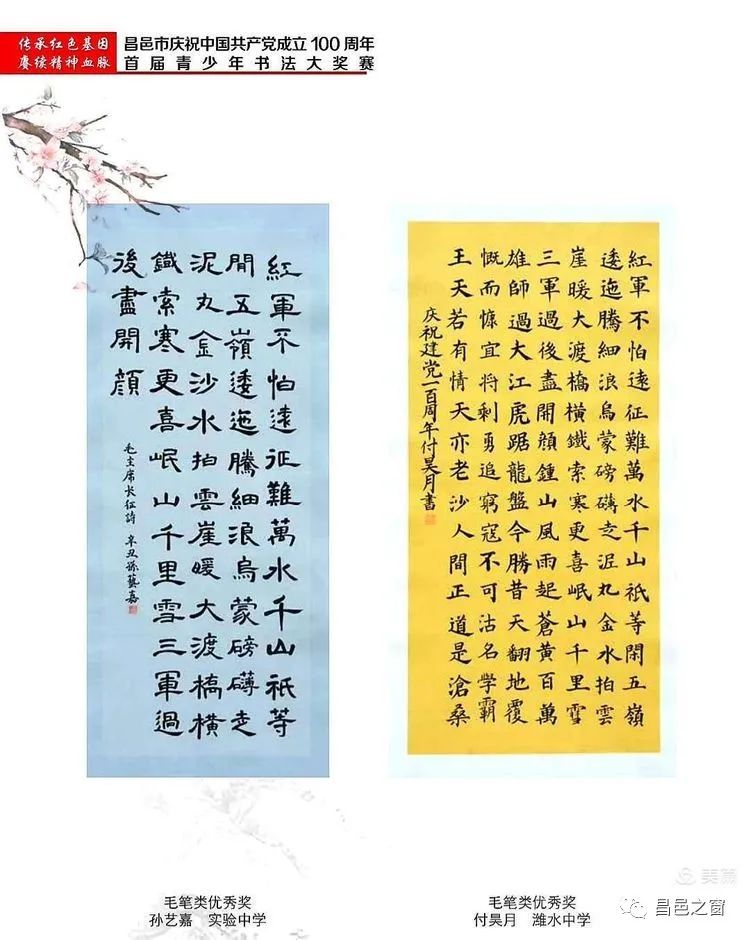 传承红色基因
赓续精神血脉
昌邑市庆祝中国共产党成立100周年
首届青少年书法大奖赛
紅軍不怕遠征難萬水千山祇等
閒五嶺逶迤騰細浪烏蒙磅礴走
泥丸金沙水拍雲崖暖大渡橋橫
鐵索寒更喜岷山千里雪三軍過
後盡開顔
毛主席长征詩 辛丑孫藝嘉
紅軍不怕遠征難萬水千山祇等閑五嶺
逶迤騰細浪烏蒙磅礴走泥丸金水拍雲
崖暖大渡橋橫鐵索寒更喜岷山千里雪
三軍過後盡開顔鍾山風雨起蒼黃百萬
雄師過大江虎踞龍盤今勝昔天翻地覆
慨而慷宜將剩勇追窮寇不可沽名學霸
王天若有情天亦老沙人間正道是滄桑
庆祝建党一百周年付昊月書
毛笔类优秀奖
孙艺嘉 实验中学
毛笔类优秀奖
付昊月 潍水中学
美篇
昌邑之窗